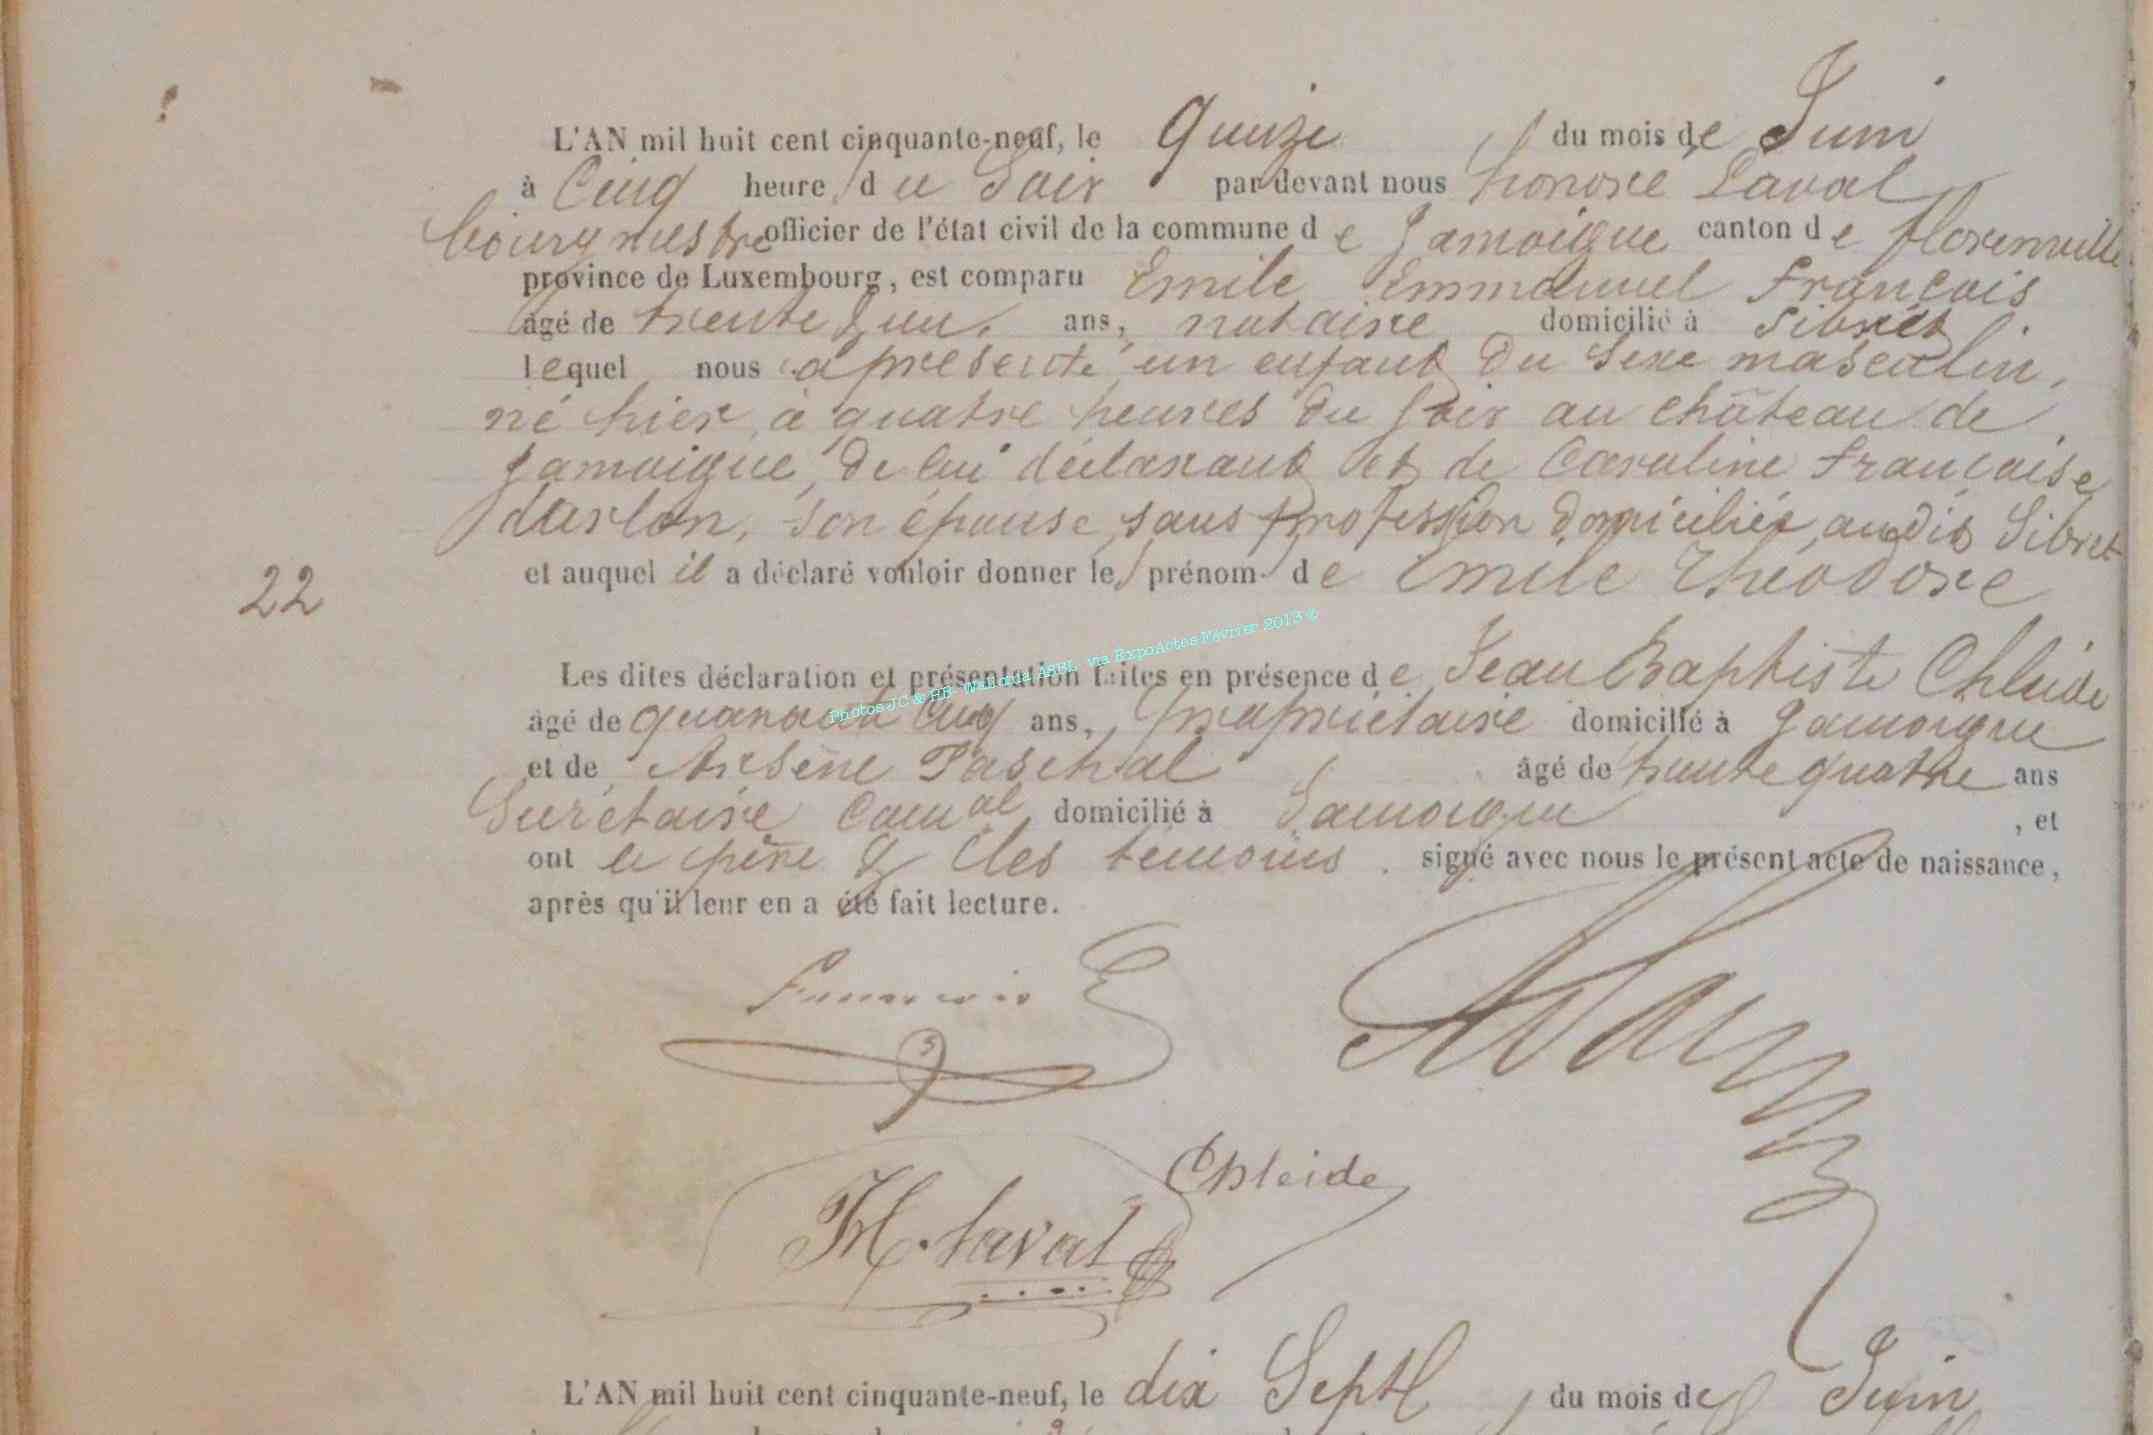 L'AN mil huit cent cinquante-neuf, le Quinze du mois de Juin
à Cinq heure du Soir par devant nous honoré Laval
bourgmestre officier de l'état civil de la commune de Jamoigne canton de florenville
province de Luxembourg, est comparu Emile Emmanuel François
âgé de trente & un ans, notaire domicilié à Sibret
lequel nous a présenté un enfant du sexe masculin,
né hier, à quatre heures du soir au château de
Jamoigne, de lui déclarant et de Caroline Françoise
darlon, son épouse, sans profession domiciliée audit Sibret
22
et auquel il a déclaré vouloir donner les prénoms de Emile Théodore
Photos JC & RB - Wallonia ASBL via ExpoActes Février 2013 ©
Les dites déclaration et présentation faites en présence de Jean Baptiste Chleide
âgé de quarante cinq ans, propriétaire domicilié à Jamoigne
et de Arsène Paschal âgé de trente quatre ans
Secrétaire Comal domicilié à Jamoigne , et
ont le père & les témoins signé avec nous le présent acte de naissance,
après qu'il leur en a été fait lecture.
François E
Chleide
H. Laval
L'AN mil huit cent cinquante-neuf, le dix Sept du mois de Juin